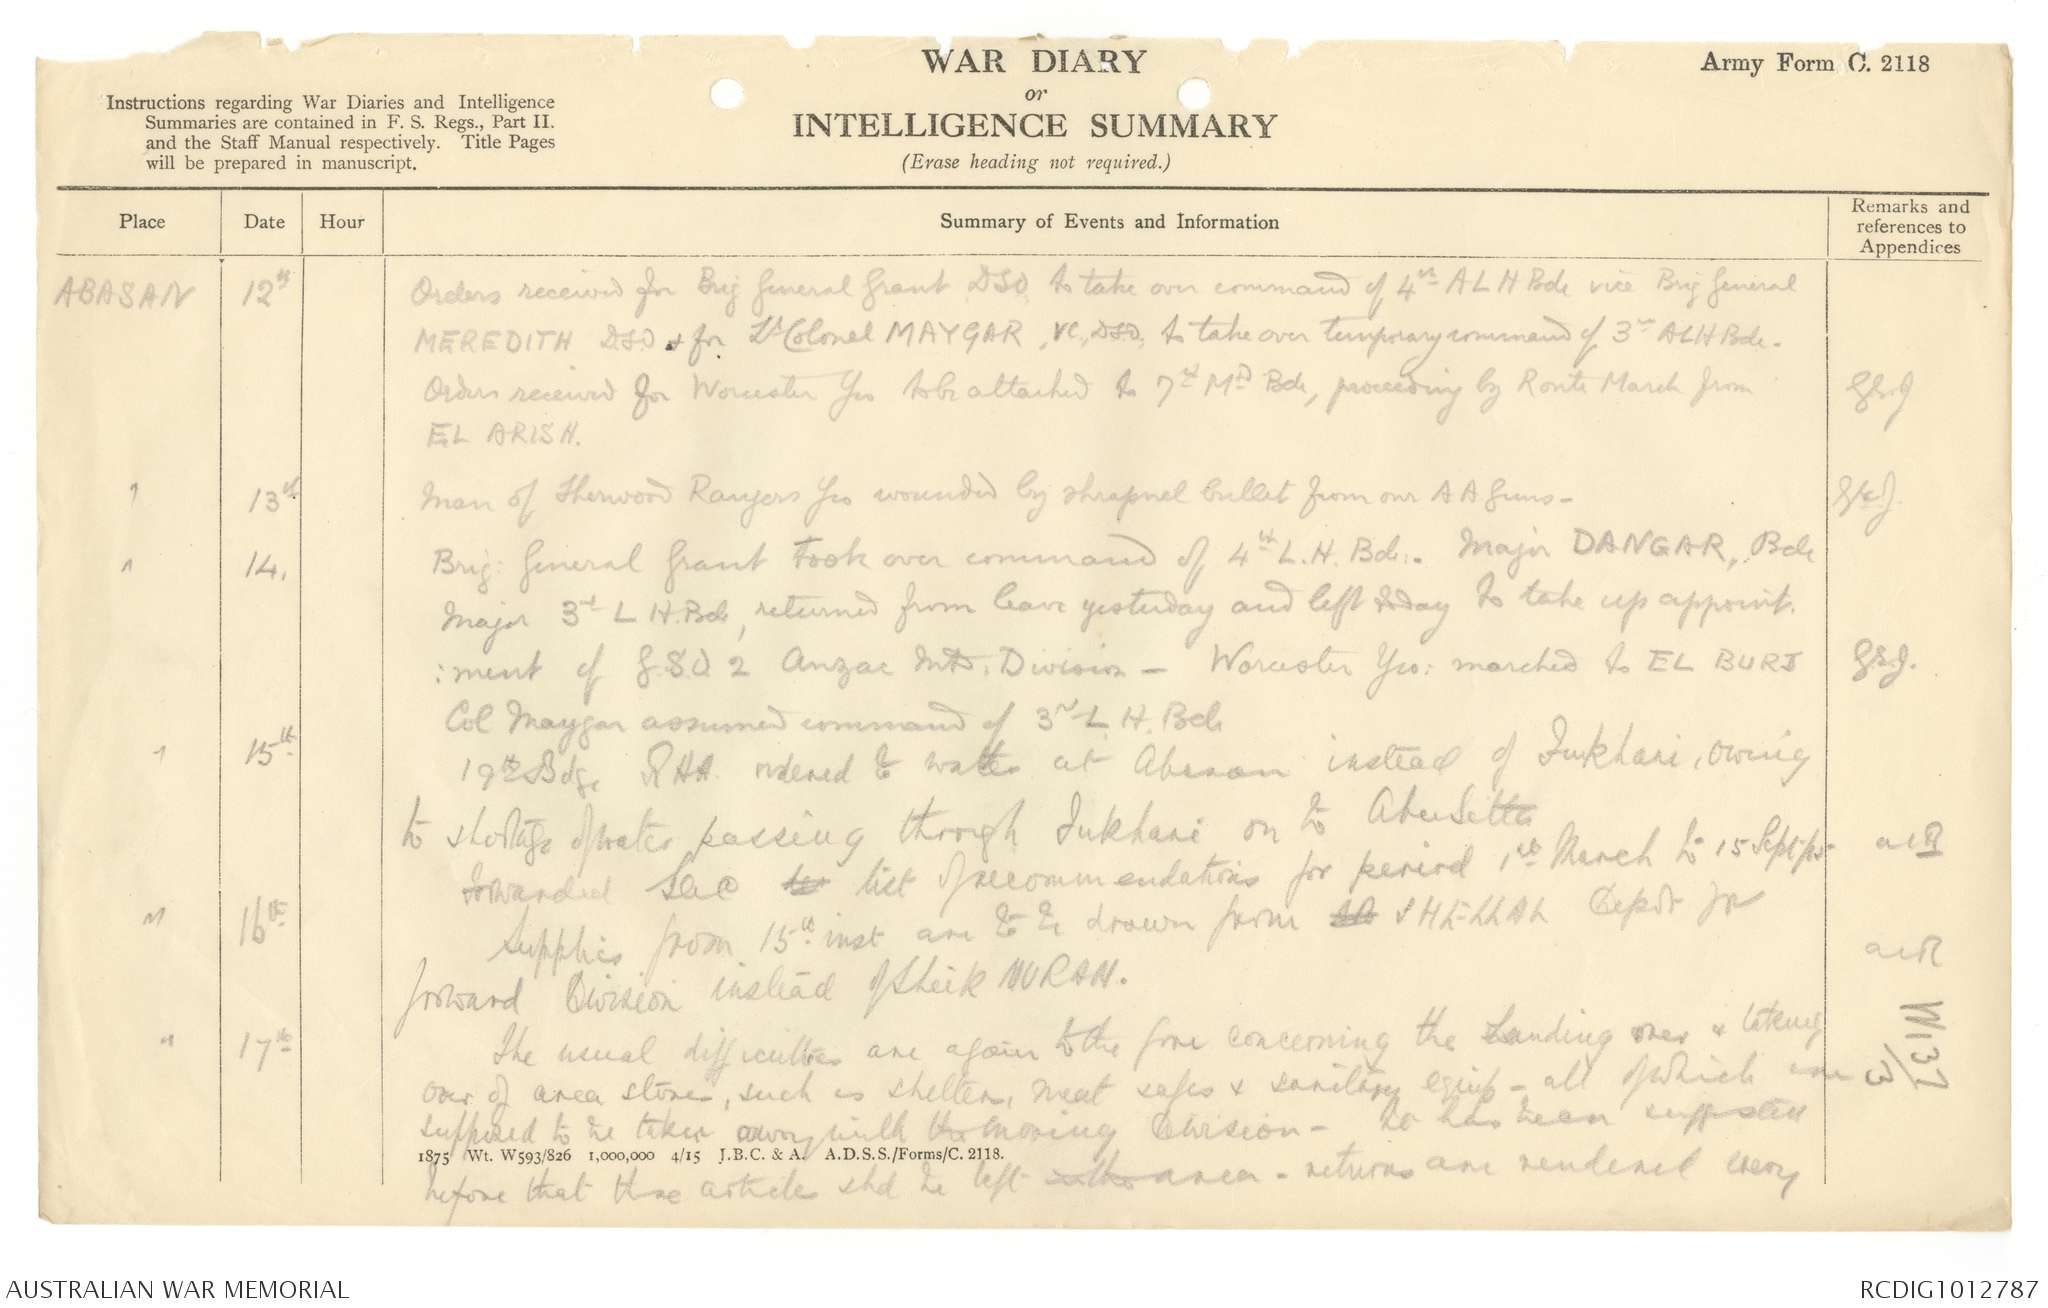 WAR DIARY
or
INTELLIGENCE SUMMARY
(Erase heading not required.)
Army Form C. 2118
Instructions regarding War Diaries and Intelligence
Summaries are contained in F. S. Regs., Part II.
and the Staff Manual respectively. Title Pages
will be prepared in manuscript.
Place Date Hour Summary of Events and Information Remarks and
references to
Appendices
ABASAN 12th Orders received for Brig General Grant DSO to take over command of 4th ALH Bde vice Brig General
MEREDITH DSO & for Lt Colonel MAYGAR, VC, DSO, to take over temporary command of 3rd ALH Bde.
Orders received for Worcester Yeo to be attached to 7th Mtd Bde, proceeding by Route March from
EL ARISH.
" 13th Man of Sherwood Rangers Yeo wounded by shrapnel bullet from our AA Guns -
" 14. Brig: General Grant took over command of 4th L.H. Bde. Major DANGAR, Bde
Major 3rd L H. Bde, returned from leave yesterday and left today to take up appoint.
:ment of G.S.O 2 Anzac Mtd. Division - Worcester Yeo: marched to EL BURJ
Col Maygar assumed command of 3rd L.H. Bde
" 15th 19th Bdge RHA ordered to water at Abasan instead of Fukhari, owing
to shortage of water passing through Fukhari on to Abu Sitta
Forwarded list of recommendations for period 1st March to 15 Sept
" 16th Supplies from 15th inst are to be drawn from SHELLAL Depot for
forward Division instead of Sheik NURAN.
" 17th The usual difficulties are again to the fore concerning the handing over & taking
over of area stores, such as shelters, meat safes & sanitary equip - all of which are
supposed to be taken away with the moving Division - It has been suggested
1875 Wt. W593/826 1,000,000 4/15 J.B.C. & A. A.D.S.S./Forms/C. 2118.
before that these articles shd be left area - returns are rendered every
W137/3
AUSTRALIAN WAR MEMORIAL
RCDIG1012787